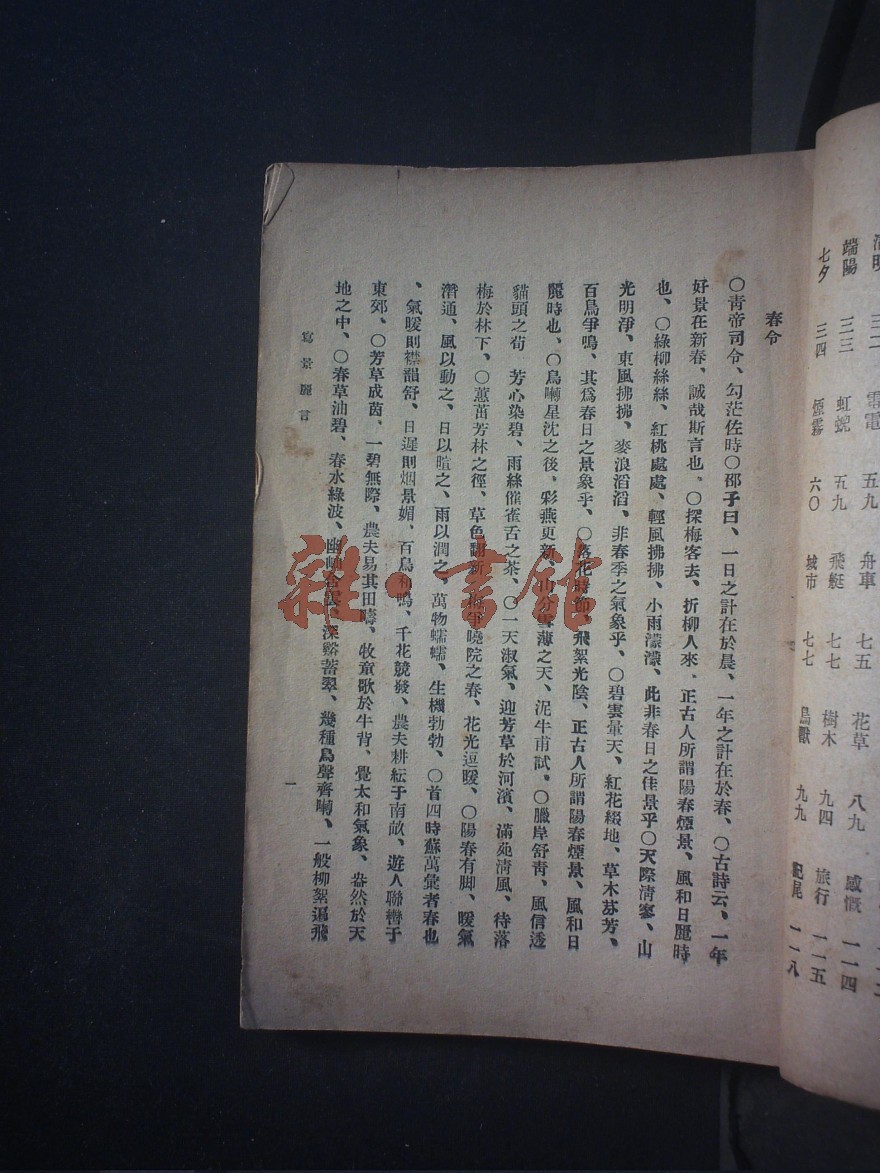 清明 三二 電電 五九 舟車 七五 花草 八九 感慨 一一四
端陽 三三 虹蜺 五九 飛艇 七七 樹木 九四 旅行 一一五
七夕 三四 煙霧 六〇 城市 七七 鳥獸 九九 記尾 一一八
春令
〇靑帝司令、勾茫佐時〇邵子曰、一日之計在於晨、一年之計在於春、〇古詩云、一年
好景在新春、誠哉斯言也、〇探梅客去、折柳人來、正古人所謂陽春煙景、風和日麗時
也、〇綠柳絲絲、紅桃處處、輕風拂拂、小雨濛濛、此非春日之佳景乎〇天際淸寥、山
光明淨、東風拂拂、麥浪滔滔、非春季之氣象乎、〇碧雲暈天、紅花綴地、草木芬芳、
百鳥爭鳴、其爲春日之景象乎、〇落花時節、飛絮光陰、正古人所謂陽春煙景、風和日
麗時也、〇鳥囀星沈之後、彩燕更新、山分雪薄之天、泥牛甫試、〇臘岸舒靑、風信透
貓頭之荀 芳心染碧、雨絲催雀舌之茶、〇一天淑氣、迎芳草於河濱、滿苑淸風、待落
梅於林下、〇蕙茁芳林之徑、草色翻新、曉院之春、花光逗暖、〇陽春有脚、暖氣
潛通、風以動之、日以暄之、雨以潤之、萬物蠕蠕、生機勃勃、〇首四時蘇萬彙者春也
、氣暖則襟韻舒、日遲則烟景媚、百鳥和鳴、千花競發、農夫耕紜于南畝、遊人聯轡于
東郊、〇芳草成茵、一碧無際、農夫易其田疇、牧童歌於牛背、覺太和氣象、盎然於天
地之中、〇春草油碧、春水綠波、幽岫含雲、深谿蓄翠、幾種鳥聲齊囀、一般柳絮遍飛
寫景麗言
一
雜·書館